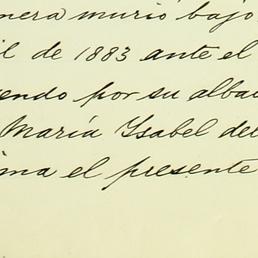 mera murió bajo
il de 1883 ante el
endo por su alba
María Ysabel del
ma el presente